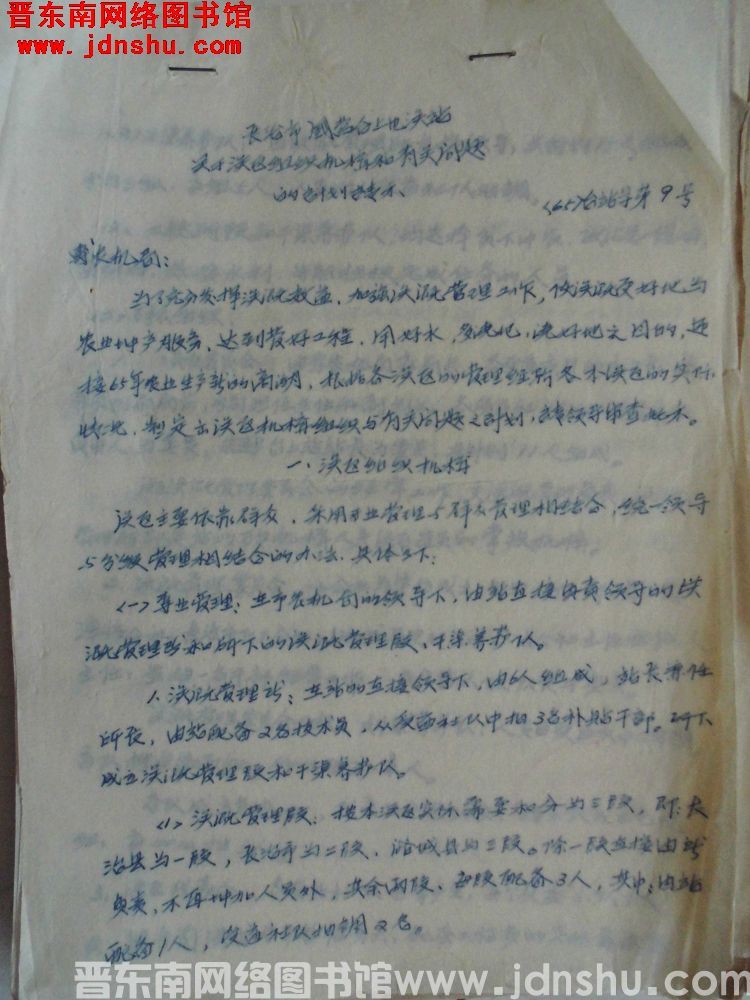 晋东南网络图书馆
www.jdnshu.com
长治市 上电灌站
关于灌区组织机构和有关问题
的计划
(65)治站字第9号
农机局:
为了充分发挥灌溉效益,加强灌溉管理工作,使灌溉更好地为
农业增产服务,达到管好工程,用好水,多浇地,浇好地之目的,迎
接65年农业生产新的高潮,根据各灌区的管理经验各本灌区的实际
情况,制定出灌区机构组织与有关问题之计划,请领导审查批示。
一、灌区组织机构
灌区主要依靠群众,采用专业管理与群众管理相结合,统一领导
与分级管理相结合的办法,具体如下:
(一)专业管理:在市农机局的领导下,由站直接负责领导的灌
溉管理所和所下的灌溉管理段、干渠养护队。
1.灌溉管理所:在站的直接领导下,由6人组成,站长兼任
所长,由站配备2名技术员,从受益社队中抽3名补贴干部。所下
成立灌溉管理段和干渠养护队。
(1)灌溉管理段:按本灌区实际需要和分为三段,即:长
治县为一段,长治市为二段、潞城县为三段。除一段直接由所
负责,不再增加人员外,其余两段、每段配备3人,其中:由站
配备1人,受益社队抽调2名。
晋东南网络图书馆www.jdnshu.com